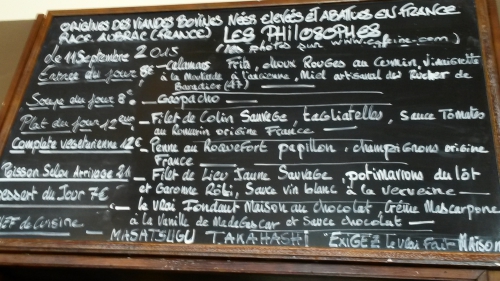 ORIGINES DES VIANDES BOVINES NÉES ELEVÉES ET ABATTUES EN FRANCE
RACE AUBRAC (FRANCE) LES PHILOSOPHES
le 11 Septembre 2015 (Nos photos sur www.cafeine.com)
Entrée du jour 8€ - Calamars Frits, choux Rouges au Cumin, vinaigrette
à la Moutarde à l'ancienne, Miel artisanal des Rucher de
Baradier (47)
Soupe du jour 8€ - Gaspacho
Plat du jour 12 - Filet de Colin Sauvage, tagliatelles, Sauce Tomates
au Romarin origine France
Complète végétarienne 12€ - Penne au Roquefort papillon, champignons origine
France
Poisson Selon Arrivage - Filet de Lieu Jaune Sauvage, potimarrons du lôt
et Garonne Rôti, Sauce vin blanc à la verveine
dessert du Jour 7€ - le vrai Fondant Maison au chocolat, Crème Mascarpone
à la Vanille de Madagascar et Sauce chocolat
HEF de Cuisine
MASATSUGU TAKAHASHI "EXIGEZ le vrai Fait-MAISON